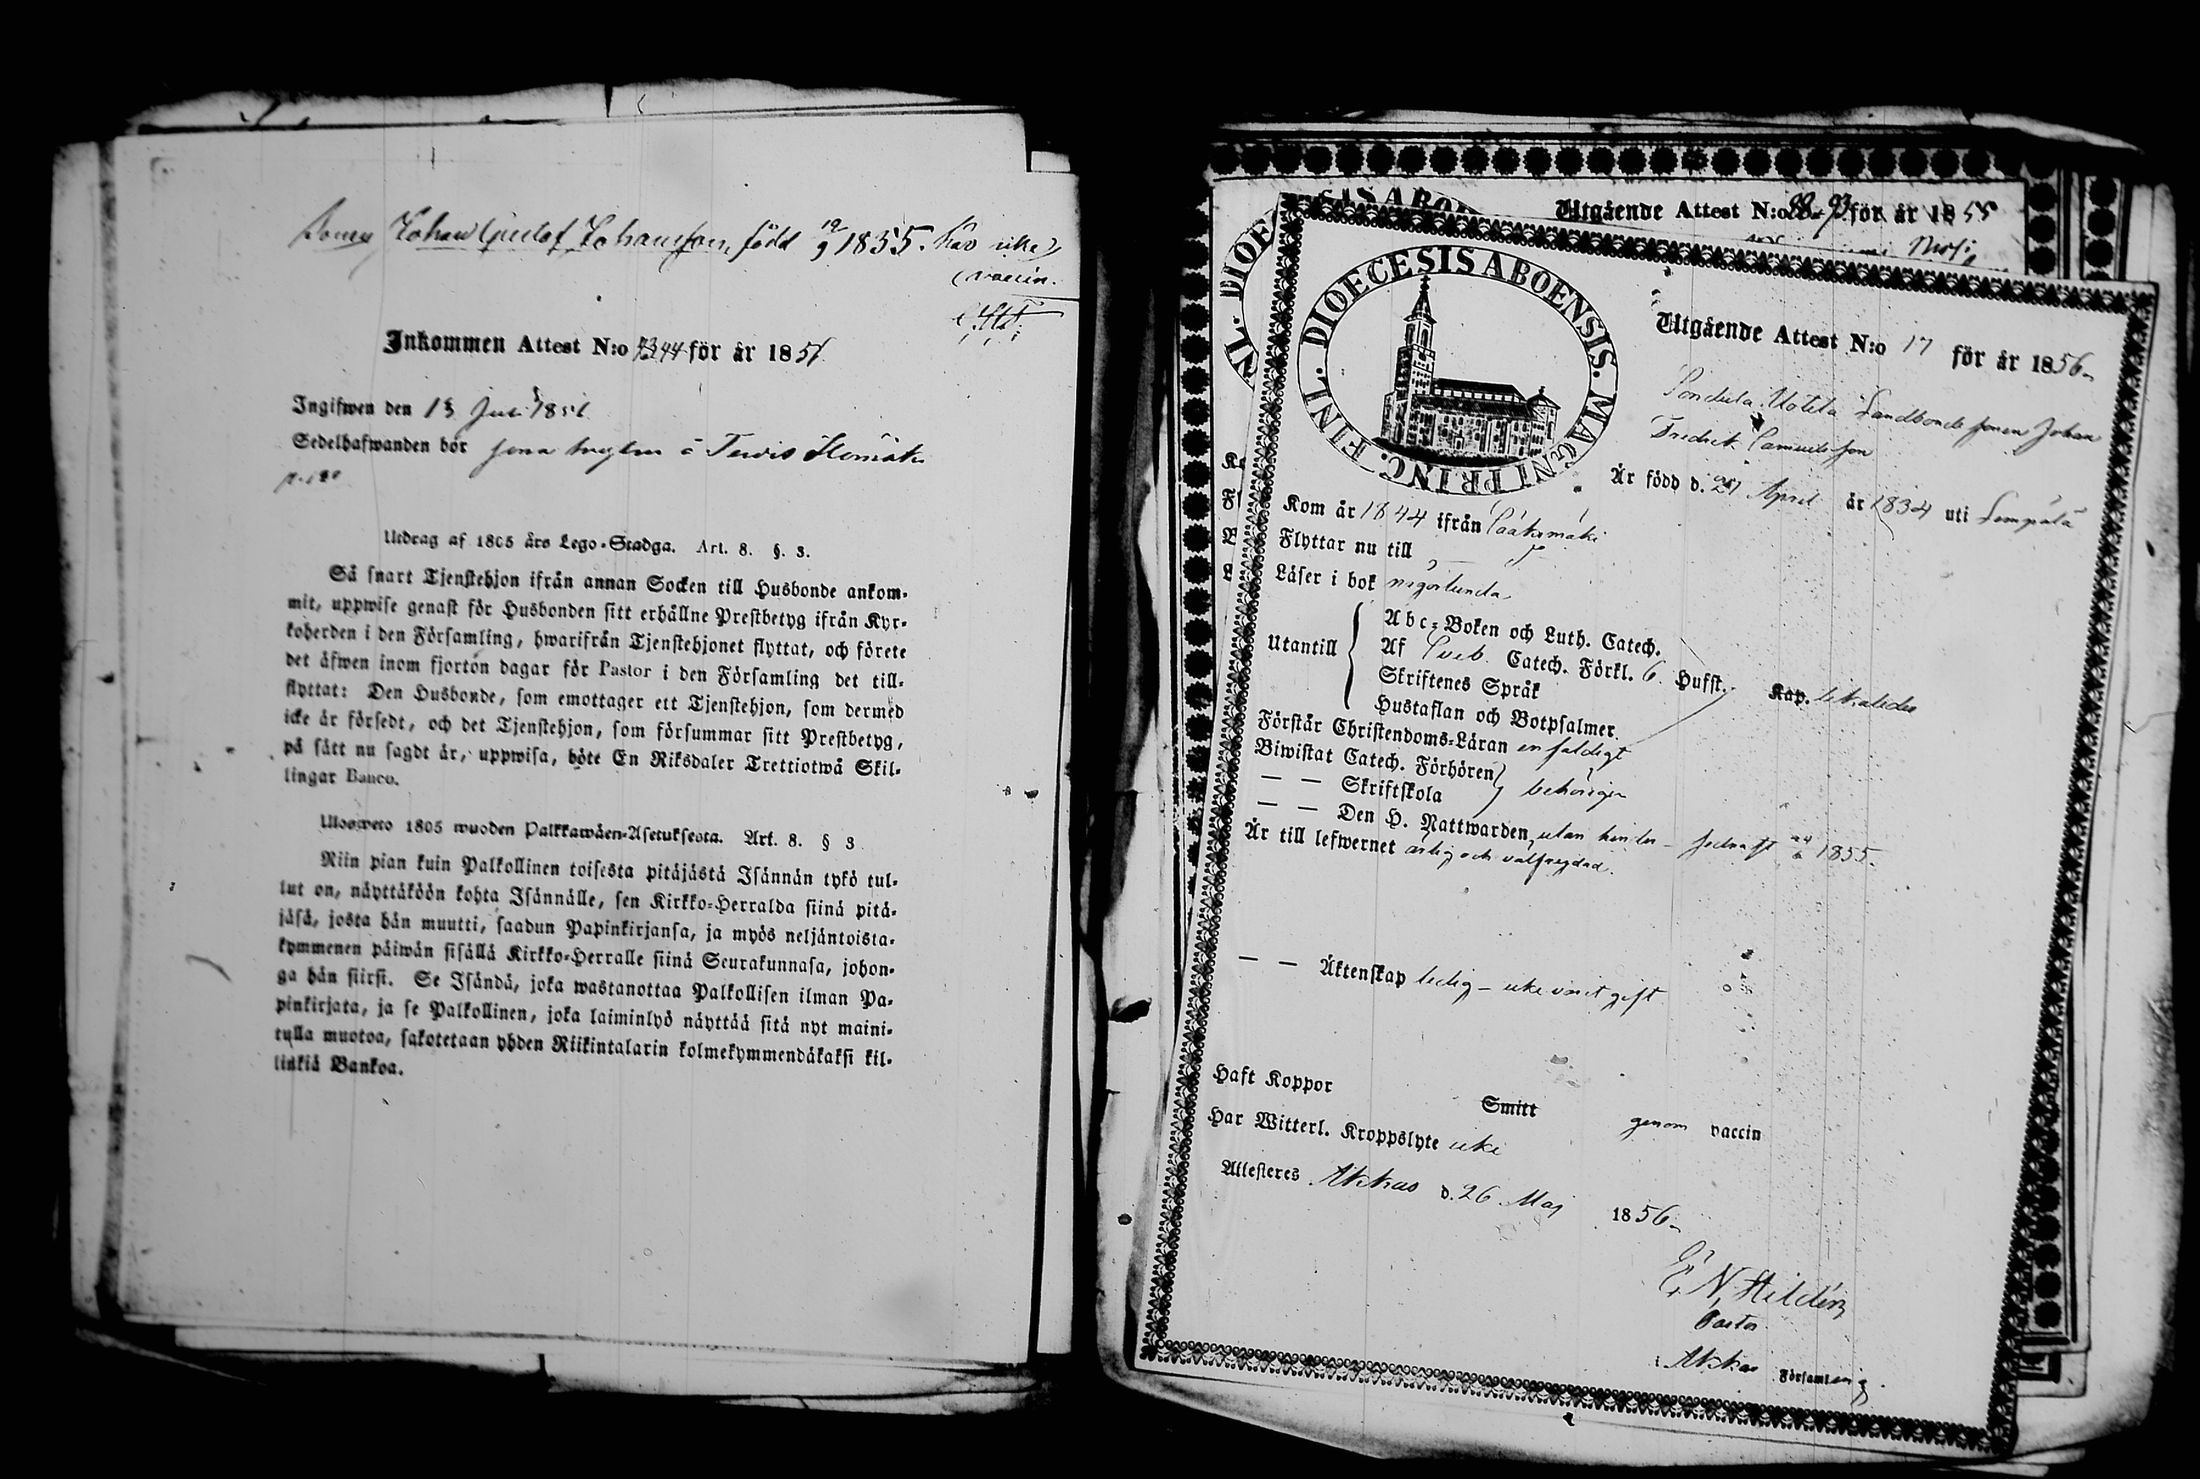 Johan Gustaf Johansson, född 19/9 1855. har icke
vaccin.
Inkommen Attest N:o 43.44 för år 1856
Ingifwen den 13 Juli 1856
Sedelhafwanden bör
Utdrag af 1805 års Lego-Stadga. Art. 8. §. 3.
Så snart Tjenstehjon ifrån annan Socken till Husbonde ankom-
mit, uppwise genast för Husbonden sitt erhållne Prestbetyg ifrån Kyr-
koherden i den Församling, hwarifrån Tjenstehjonet flyttat, och förete
det äfwen inom fjorton dagar för Pastor i den Församling det till-
flyttat: Den Husbonde, som emottager ett Tjenstehjon, som dermed
icke är försedt, och det Tjenstehjon, som försummar sitt Prestbetyg,
på sätt nu sagdt är, uppwisa, böte En Riksdaler Trettiotwå Skil-
lingar Banco.
Ulosweto 1805 wuoden Palkkawäen-Asetuksesta. Art. 8. § 3
Niin pian kuin Palkollinen toisesta pitäjästä Isännän tykö tul-
lut on, näyttäköön kohta Isännälle, sen Kirkko-Herralda siinä pitä-
jäsä, josta hän muutti, saadun Papinkirjansa, ja myös neljäntoista-
kymmenen päiwän sisällä Kirkko-Herralle siinä Seurakunnasa, johon-
ga hän siirsi. Se Isändä, joka wastanottaa Palkollisen ilman Pa-
pinkirjata, ja se Palkollinen, joka laiminlyö näyttää sitä nyt maini-
tulla muotoa, sakotetaan yhden Riikintalarin kolmekymmendäkaksi kil-
linkiä Bankoa.
Utgående Attest N:o 93 för år 1855
DIOECESIS ABOENSIS. MAGNI PRINC. FINL.
Utgående Attest N:o 17 för år 1856
Landbonde sonen Johan
Fredrik Samuelsson
Är född d. 27 April år 1834 uti Lempälä
Kom år 1844 ifrån Sääksmäki
Flyttar nu till
Läser i bok någorlunda
Utantill
Abc-Boken och Luth. Catech.
Af Sveb. Catech. Förkl. 6 Hufst. Kap.
Skriftenes Språk
Hustaflan och Botpsalmer.
Förstår Christendoms-Läran enfaldigt
Biwistat Catech. Förhören
— — Skriftskola behörigen
— — Den H. Nattwarden, utan hinder - sednast 24/6 1855.
Är till lefwernet ärlig och välfrejdad.
— — Äktenskap ledig - icke varit gift
Haft Koppor Smitt genom vaccin
Har Witterl. Kroppslyte icke
Attesteres Akkas d. 26 Maj 1856
E. N. Hildén
Pastor
i Akkas Församling.